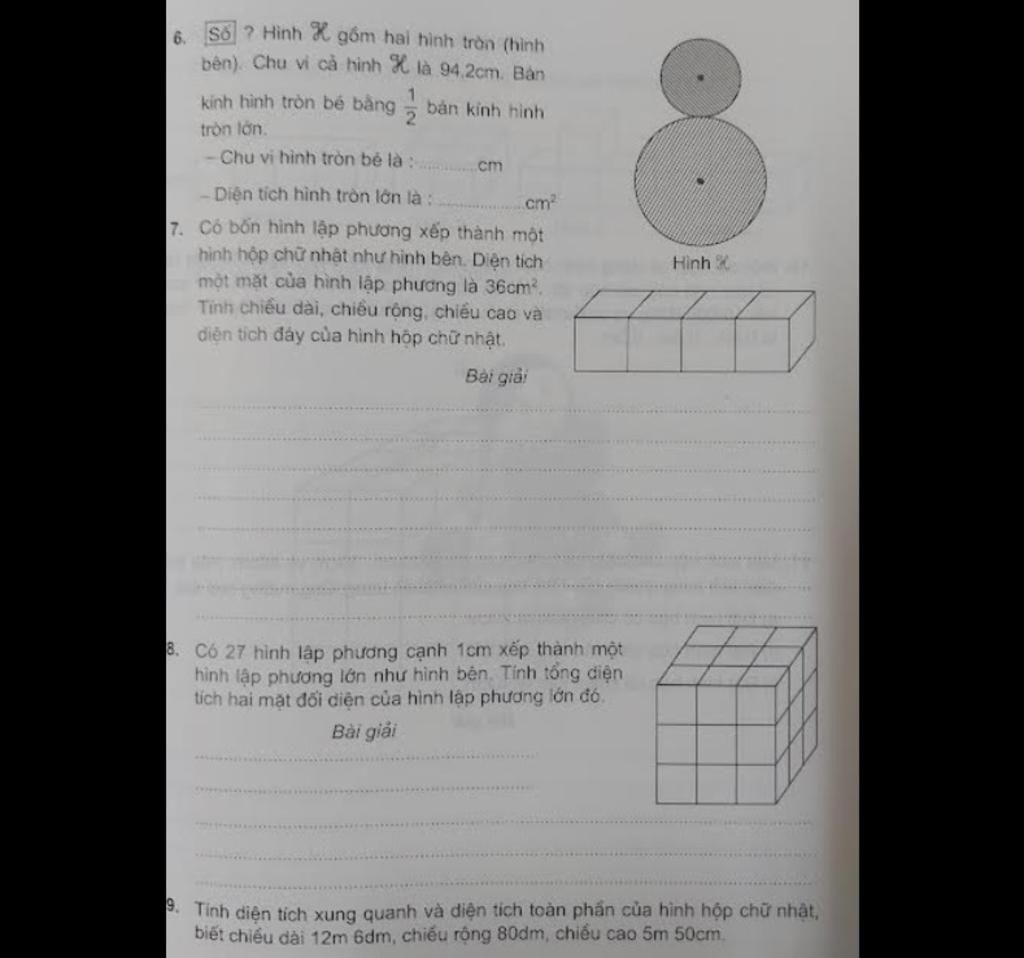 6. Số ? Hình ℋ gồm hai hình tròn (hình
bên). Chu vi cả hình ℋ là 94,2cm. Bán
kính hình tròn bé bằng 1/2 bán kính hình
tròn lớn.
– Chu vi hình tròn bé là : ............ cm
– Diện tích hình tròn lớn là : ................ cm²
Hình ℋ
7. Có bốn hình lập phương xếp thành một
hình hộp chữ nhật như hình bên. Diện tích
một mặt của hình lập phương là 36cm².
Tính chiều dài, chiều rộng, chiều cao và
diện tích đáy của hình hộp chữ nhật.
Bài giải
8. Có 27 hình lập phương cạnh 1cm xếp thành một
hình lập phương lớn như hình bên. Tính tổng diện
tích hai mặt đối diện của hình lập phương lớn đó.
Bài giải
9. Tính diện tích xung quanh và diện tích toàn phần của hình hộp chữ nhật,
biết chiều dài 12m 6dm, chiều rộng 80dm, chiều cao 5m 50cm.